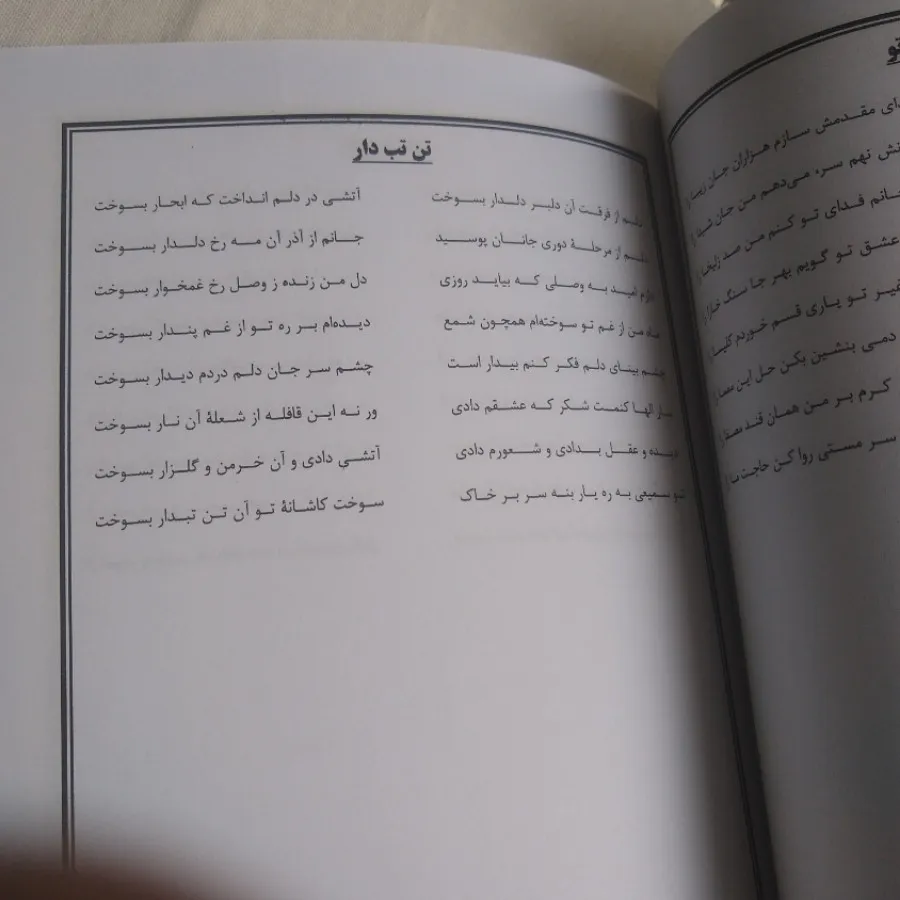 تن تب دار
از فرقت آن دلبر دلدار بسوخت
آتشی در دلم انداخت که ابحار بسوخت
از مرحلهٔ دوری جانان پوسید
جانم از آذر آن مه رخ دلدار بسوخت
امید به وصلی که بیاید روزی
دل من زنده ز وصل رخ غمخوار بسوخت
من از غم تو سوخته‌ام همچون شمع
دیده‌ام بر ره تو از غم پندار بسوخت
بینای دلم فکر کنم بیدار است
چشم سر جان دلم دردم دیدار بسوخت
الها کنمت شکر که عشقم دادی
ور نه این قافله از شعلهٔ آن نار بسوخت
و عقل بدادی و شعورم دادی
آتشی دادی و آن خرمن و گلزار بسوخت
سمیعی به ره یار بنه سر بر خاک
سوخت کاشانهٔ تو آن تن تبدار بسوخت
تو
مقدمش سازم هزاران جان
نهم سر، می‌دهم من جان
فدای تو کنم من صد زلیخا
عشق تو گویم بهر جا سنگ
تو یاری قسم خوردم
دمی بنشین بکن حل این
کرم بر من همان قند
سر مستی روا کن حاجت